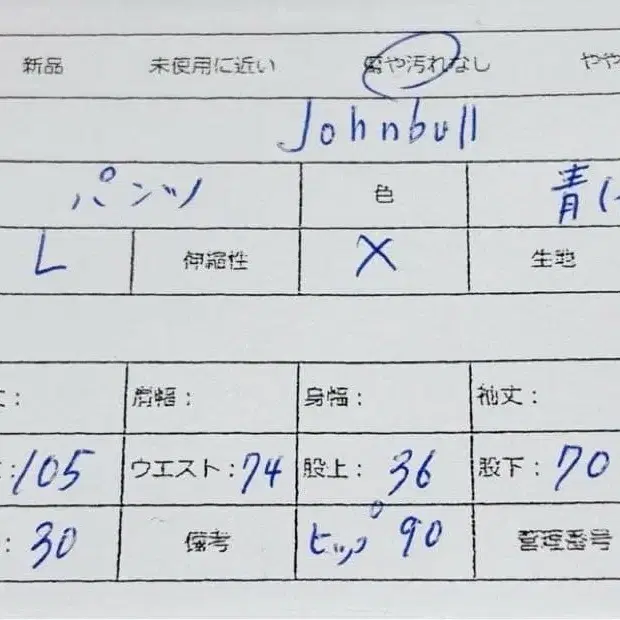 新品 未使用に近い 傷や汚れなし やや
Johnbull
パンツ 色 青(
L 伸縮性 X 生地
: 肩幅: 身幅: 袖丈:
:105 ウエスト:74 股上: 36 股下:70
: 30 備考 ヒップ 90 管理番号